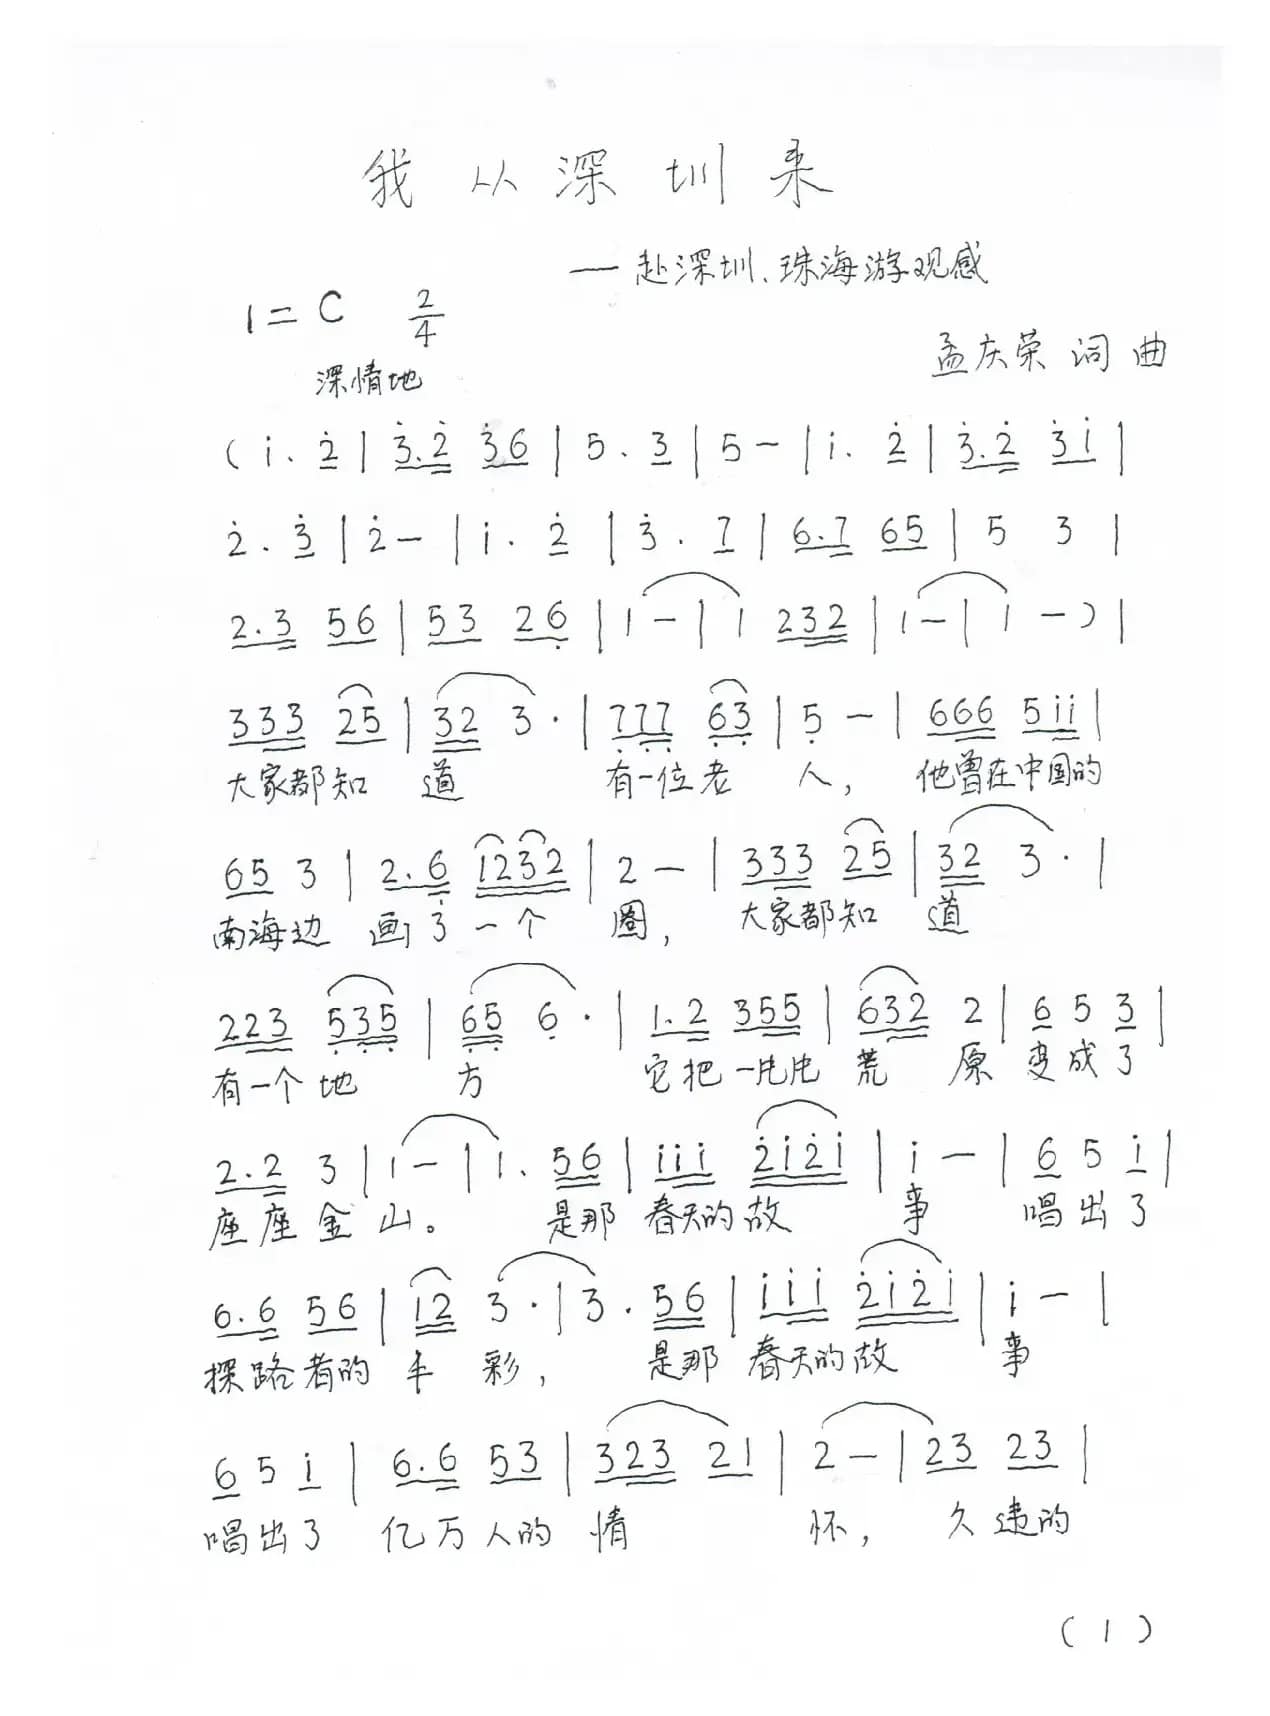 我从深圳来
——赴深圳、珠海游观感
1=C 2/4
孟庆荣 词 曲
深情地
( i. 2̇ | 3̇. 2̇ 3̇ 6 | 5. 3 | 5 — | i. 2̇ | 3̇. 2̇ 3̇ i |
2̇. 3̇ | 2̇ — | i. 2̇ | 3̇. 7 | 6. 7 6 5 | 5 3 |
2. 3 5 6 | 5 3 2 6̣ | 1 — | 1 2 3 2 | 1 — | 1 — ) |
3 3 3 2 5 | 3 2 3 · | 7̣ 7̣ 7̣ 6̣ 3̣ | 5̣ — | 6 6 6 5 i i |
大家都知 道 有一位老 人, 他曾在中国的
6 5 3 | 2. 6̣ 1 2 3 2 | 2 — | 3 3 3 2 5 | 3 2 3 · |
南海边 画了一个 圈, 大家都知 道
2 2 3 5̣ 3̣ 5̣ | 6̣ 5̣ 6̣ · | 1. 2 3 5 5 | 6 3 2 2 | 6 5 3 |
有一个地 方 它把一片片 荒 原 变成了
2. 2 3 | 1 — | 1. 5 6 | i i i 2̇ i 2̇ i | i — | 6 5 i |
座座金山。 是那 春天的故 事 唱出了
6. 6 5 6 | 1 2 3 · | 3. 5 6 | i i i 2̇ i 2̇ i | i — |
探路者的 丰 彩, 是那 春天的故 事
6 5 i | 6. 6 5 3 | 3 2 3 2 1 | 2 — | 2 3 2 3 |
唱出了 亿万人的 情 怀, 久违的
(1)